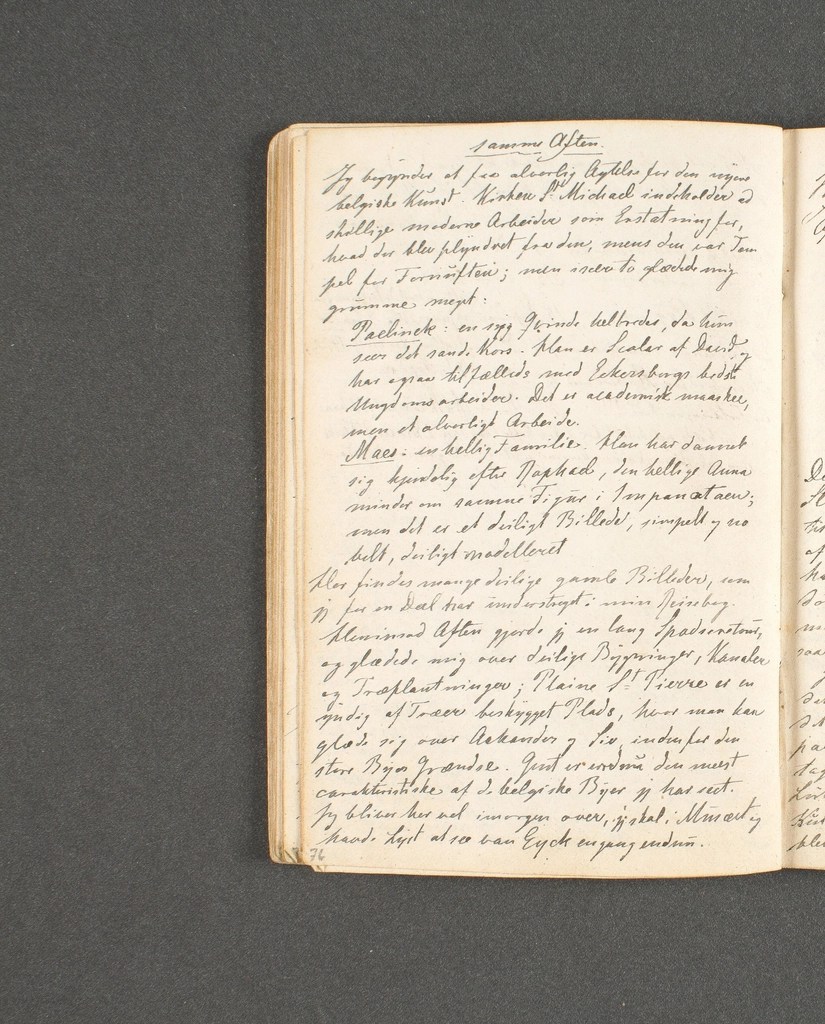 samme Aften.
Jeg begynder at faa alvorlig Agtelse for den nyere
belgiske Kunst. Kirken St Michael indeholder ad
skillige moderne Arbeider som Erstatning for,
hvad der blev plyndret fra den, mens den var Tem
pel for Fornuften; men især to glædede mig
grumme meget:
Paelinck: en syg Qvinde helbredes, da hun
seer det sande Kors. Han er Scolar af David, og
har ogsaa tilfælleds med Eckersbergs bedste
Ungdomsarbeider. Det er academisk maaskee,
men et alvorligt Arbeide.
Maes: en hellig Familie. Han har dannet
sig kjendelig efter Raphael, den hellige Anna
minder om samme Figur i Impanataen;
men det er et deiligt Billede, simpelt og no
belt, deiligt modelleret
Her findes mange deilige gamle Billeder, som
jeg for en Deel har understreget i min Reisebog.
Henimod Aften gjorde jeg en lang Spadseretour,
og glædede mig over deilige Bygninger, Kanaler
og Træplantninger; Plaine St Pierre er en
yndig af Træer beskygget Plads, hvor man kan
glæde sig over Ackander og Siv, inden for den
store Byes Grændse. Gent er endnu den meest
carakteristiske af de belgiske Byer jeg har seet.
Jeg bliver her vel imorgen over, jeg skal i Musæet og
havde Lyst at see van Eyck engang endnu.
76